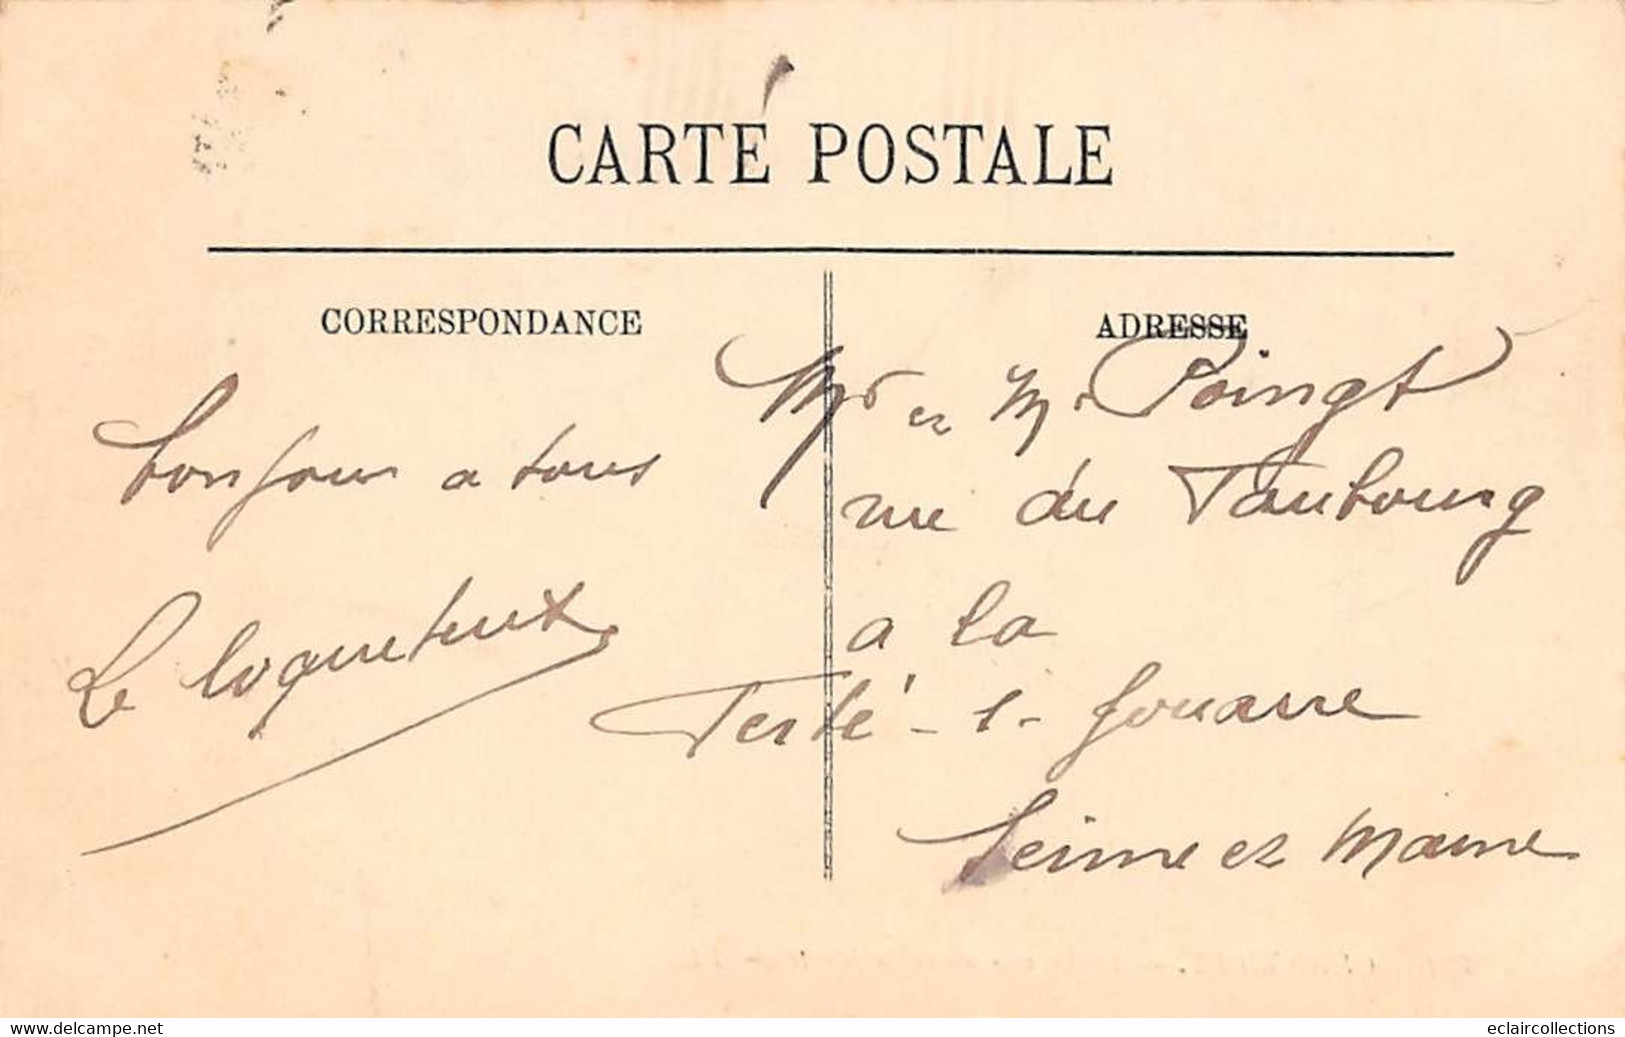 CARTE POSTALE
CORRESPONDANCE
bonjour a tous
Le loqueteux
ADRESSE
Mr et M. Poingt
rue du Faubourg
a la
Ferté-s-Jouarre
Seine et Marne
www.delcampe.net
eclaircollections